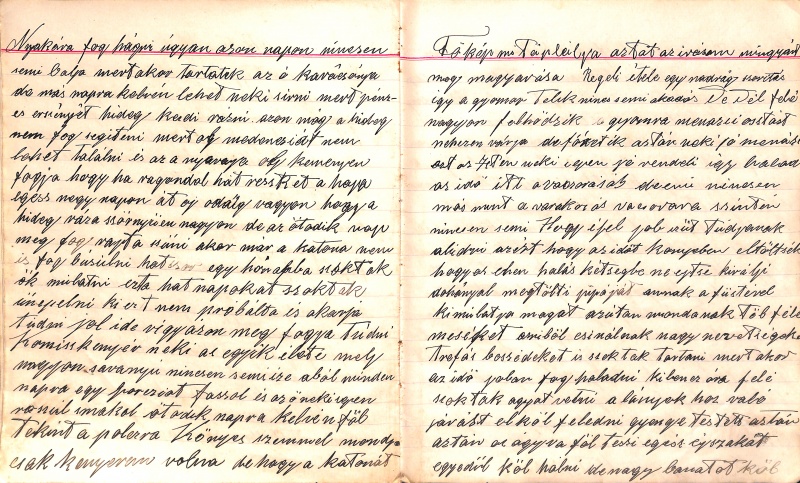 Nyakára fog hágni úgyan azon napon nincsen
semi baja mert akor tartatik az ő karácsonya
de más napra kelvén lehet neki sirni mert pénz-
es erszényét hideg kezdi rázni azon meg a hideg
nem fog segiteni mert oly medecziát nem
lehet találni és az a nyavaja oly kemenyen
fogja hogy ha ragondol hát reszket a haja
egesz negy napon át oly odaig vagyon hogy a
hideg raza szörnyüen nagyon de az ötödik nap
meg fog rajta csak akor már a katona nem
is fog busúlni hatszor egy hónapba szoktak
ők mulatni ezta hat napokat szoktak
ünepelni ki ezt nem próbálta és akarja
túdni jol ide vigyázon meg fogja túdni
komiszkenyér neki az egyik életé mely
nagyon savanyu nincsen semi ize abból minden
napra egy porcziot fassol és azönek igen
roszúl imakol ötödik napra kelvén föl
tekint a polczra Könyes szemmel mondja
csak kenyerem volna de hogy a katonát
Főkép mi táplálja aztat az irásom mingyárt
meg magyarása Regeli étele egy nadrág szoritás
igy a gyomor Telik nincs semi akadás De Dél felé
nagyon felhödzik a gyomra menászi osztást
nehezen várja de főzetik asztán neki jó menási
azt az Isten neki igen jó rendeli igy halad
az idő itt a vacsoráját de emi nincsen
más mint a várakozás vacsorára szintén
nincsen semi Hogy éjel jol aút túdjanak
alúdni azért hogy az időt könyeben eltöltsék
hogy az éhen halás kétségbe ne ejtse királyi
dohányal megtölti pipáját annak a füstével
kimúlatja magát azútán mondanak töb féle
meséket amiből csinálnak nagy nevetségeket
trefás beszédeket is szoktak tartani mert akor
az idő joban fog haladni kilencz óra felé
szoktak agyat vetni a lányok hoz való
járást el köl feledni gyenge testét asztán
asztán az agyra föl teszi egész éjszakát
egyedűl köl hálni de nagy banatot köl